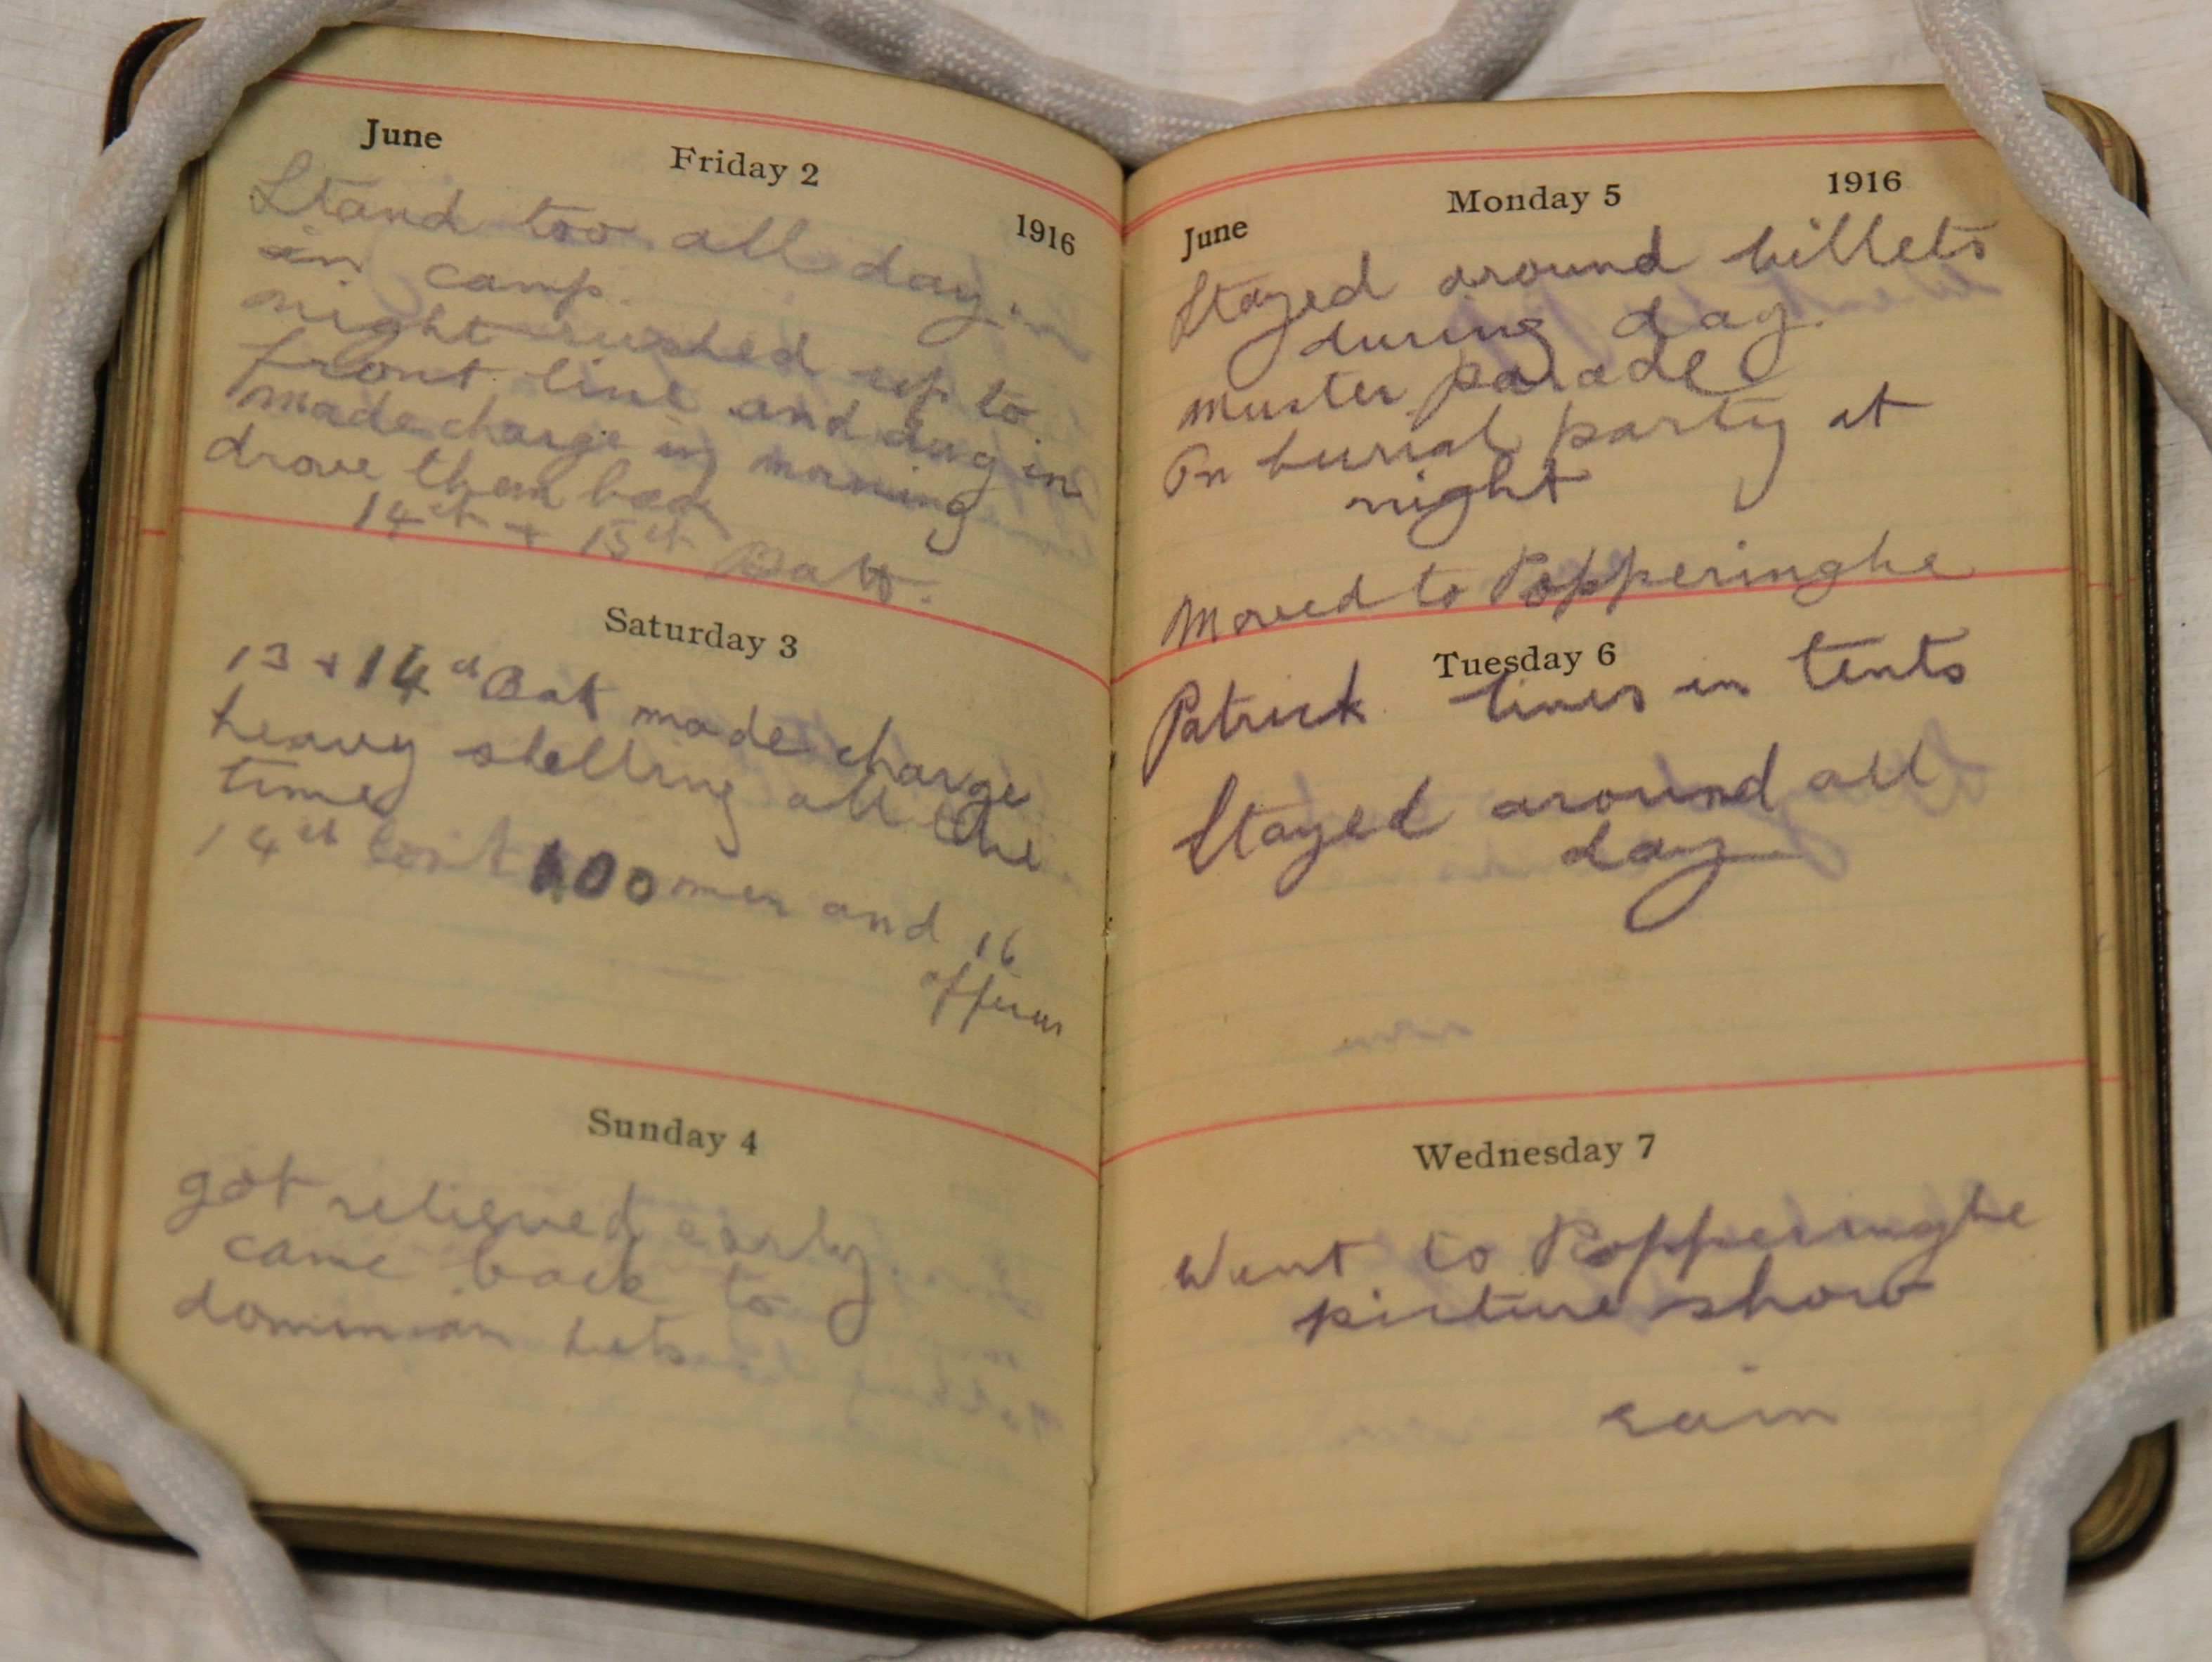 June Friday 2 1916
Stand too all day.
in camp.
night rushed up to
front line and dug in
made charge in morning
drove them back
14th + 15th Batt.
Saturday 3
13 + 14th Bat made charge
heavy shelling all the
time
14th lost 100 men and 16
officers
Sunday 4
got relieved early
came back to
dominion
June Monday 5 1916
Stayed around billets
during day.
muster parade
On burial party at
night
Moved to Popperinghe
Tuesday 6
Patrick lines in tents
Stayed around all
day
Wednesday 7
Went to Popperinghe
picture show
rain